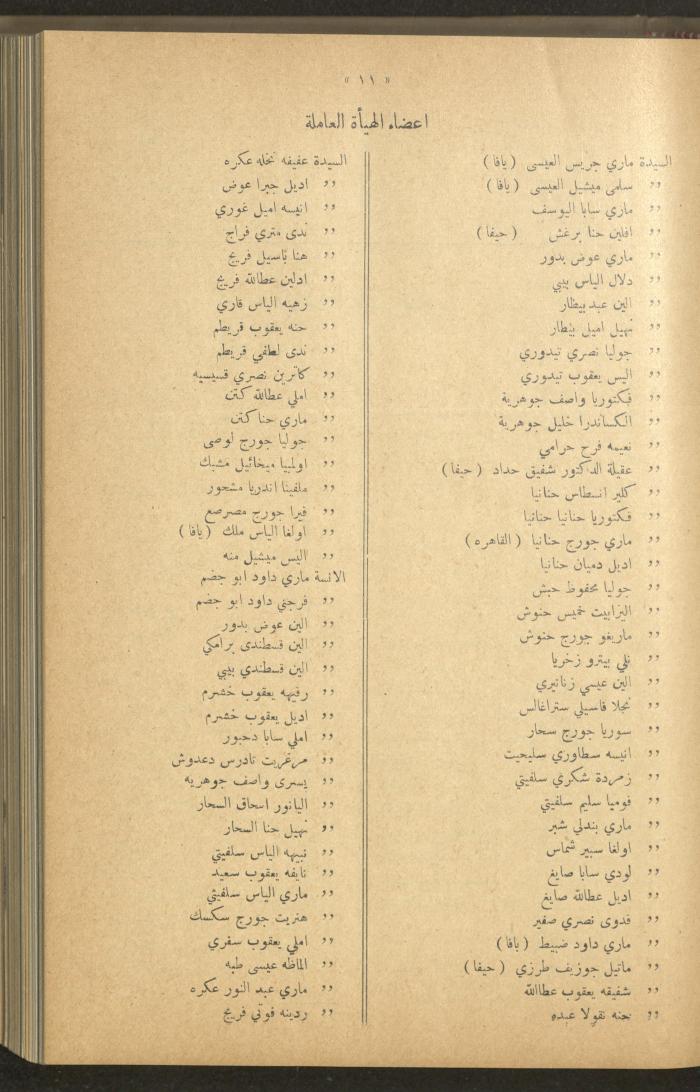 « ١١ »
اعضاء الهيأة العاملة
السيدة ماري جريس العيسى ( يافا )
» سلمى ميشيل العيسى ( يافا )
» ماري سابا اليوسف
» افلين حنا برغش ( حيفا )
» ماري عوض بدور
» دلال الياس بيبي
» الين عبد بيطار
» نهيل اميل بيطار
» جوليا نصري تيدوري
» اليس يعقوب تيدوري
» فكتوريا واصف جوهرية
» الكساندرا خليل جوهرية
» نعيمه فرح حرامي
» عقيلة الدكتور شفيق حداد ( حيفا )
» كلير انسطاس حنانيا
» فكتوريا حنانيا حنانيا
» ماري جورج حنانيا ( القاهره )
» اديل دميان حنانيا
» جوليا محفوظ حبش
» اليزابيت خميس حنوش
» ماريغو جورج حنوش
» نلي بيترو زخريا
» الين عيسي زنانيري
» نجلا فاسيلي ستراغالس
» سوريا جورج سحار
» انيسه سطاوري سليحيت
» زمردة شكري سلفيتي
» فوميا سليم سلفيتي
» ماري بندلي شبر
» اولغا سبير شماس
» لودي سابا صايغ
» اديل عطالله صايغ
» فدوى نصري صفير
» ماري داود ضبيط ( يافا )
» ماتيل جوزيف طرزي ( حيفا )
» شفيقه يعقوب عطاالله
» حنه نقولا عبده
السيدة عفيفه نخله عكره
» اديل جبرا عوض
» انيسه اميل غوري
» ندى متري فراج
» هنا باسيل فريج
» ادلين عطالله فريج
» زهيه الياس قاري
» حنه يعقوب قريطم
» ندى لطفي قريطم
» كاترين نصري قسيسيه
» املي عطالله كتن
» ماري حنا كتن
» جوليا جورج لوصى
» اولمبيا ميخائيل مشبك
» ملفينا اندريا مشحور
» فيرا جورج مصرصع
» اولغا الياس ملك ( يافا )
» اليس ميشيل منه
الانسة ماري داود ابو جضم
» فرجني داود ابو جضم
» الين عوض بدور
» الين قسطندى برامكي
» الين قسطندي بيبي
» رفيهه يعقوب خشرم
» اديل يعقوب خشرم
» املي سابا دحبور
» مرغريت تادرس دعدوش
» يسرى واصف جوهريه
» اليانور اسحاق السحار
» نهيل حنا السحار
» نبيهه الياس سلفيتي
» نايفه يعقوب سعيد
» ماري الياس سلفيتي
» هنريت جورج سكسك
» املي يعقوب سفري
» الماظه عيسى طبه
» ماري عبد النور عكره
» ردينه فوتي فريج